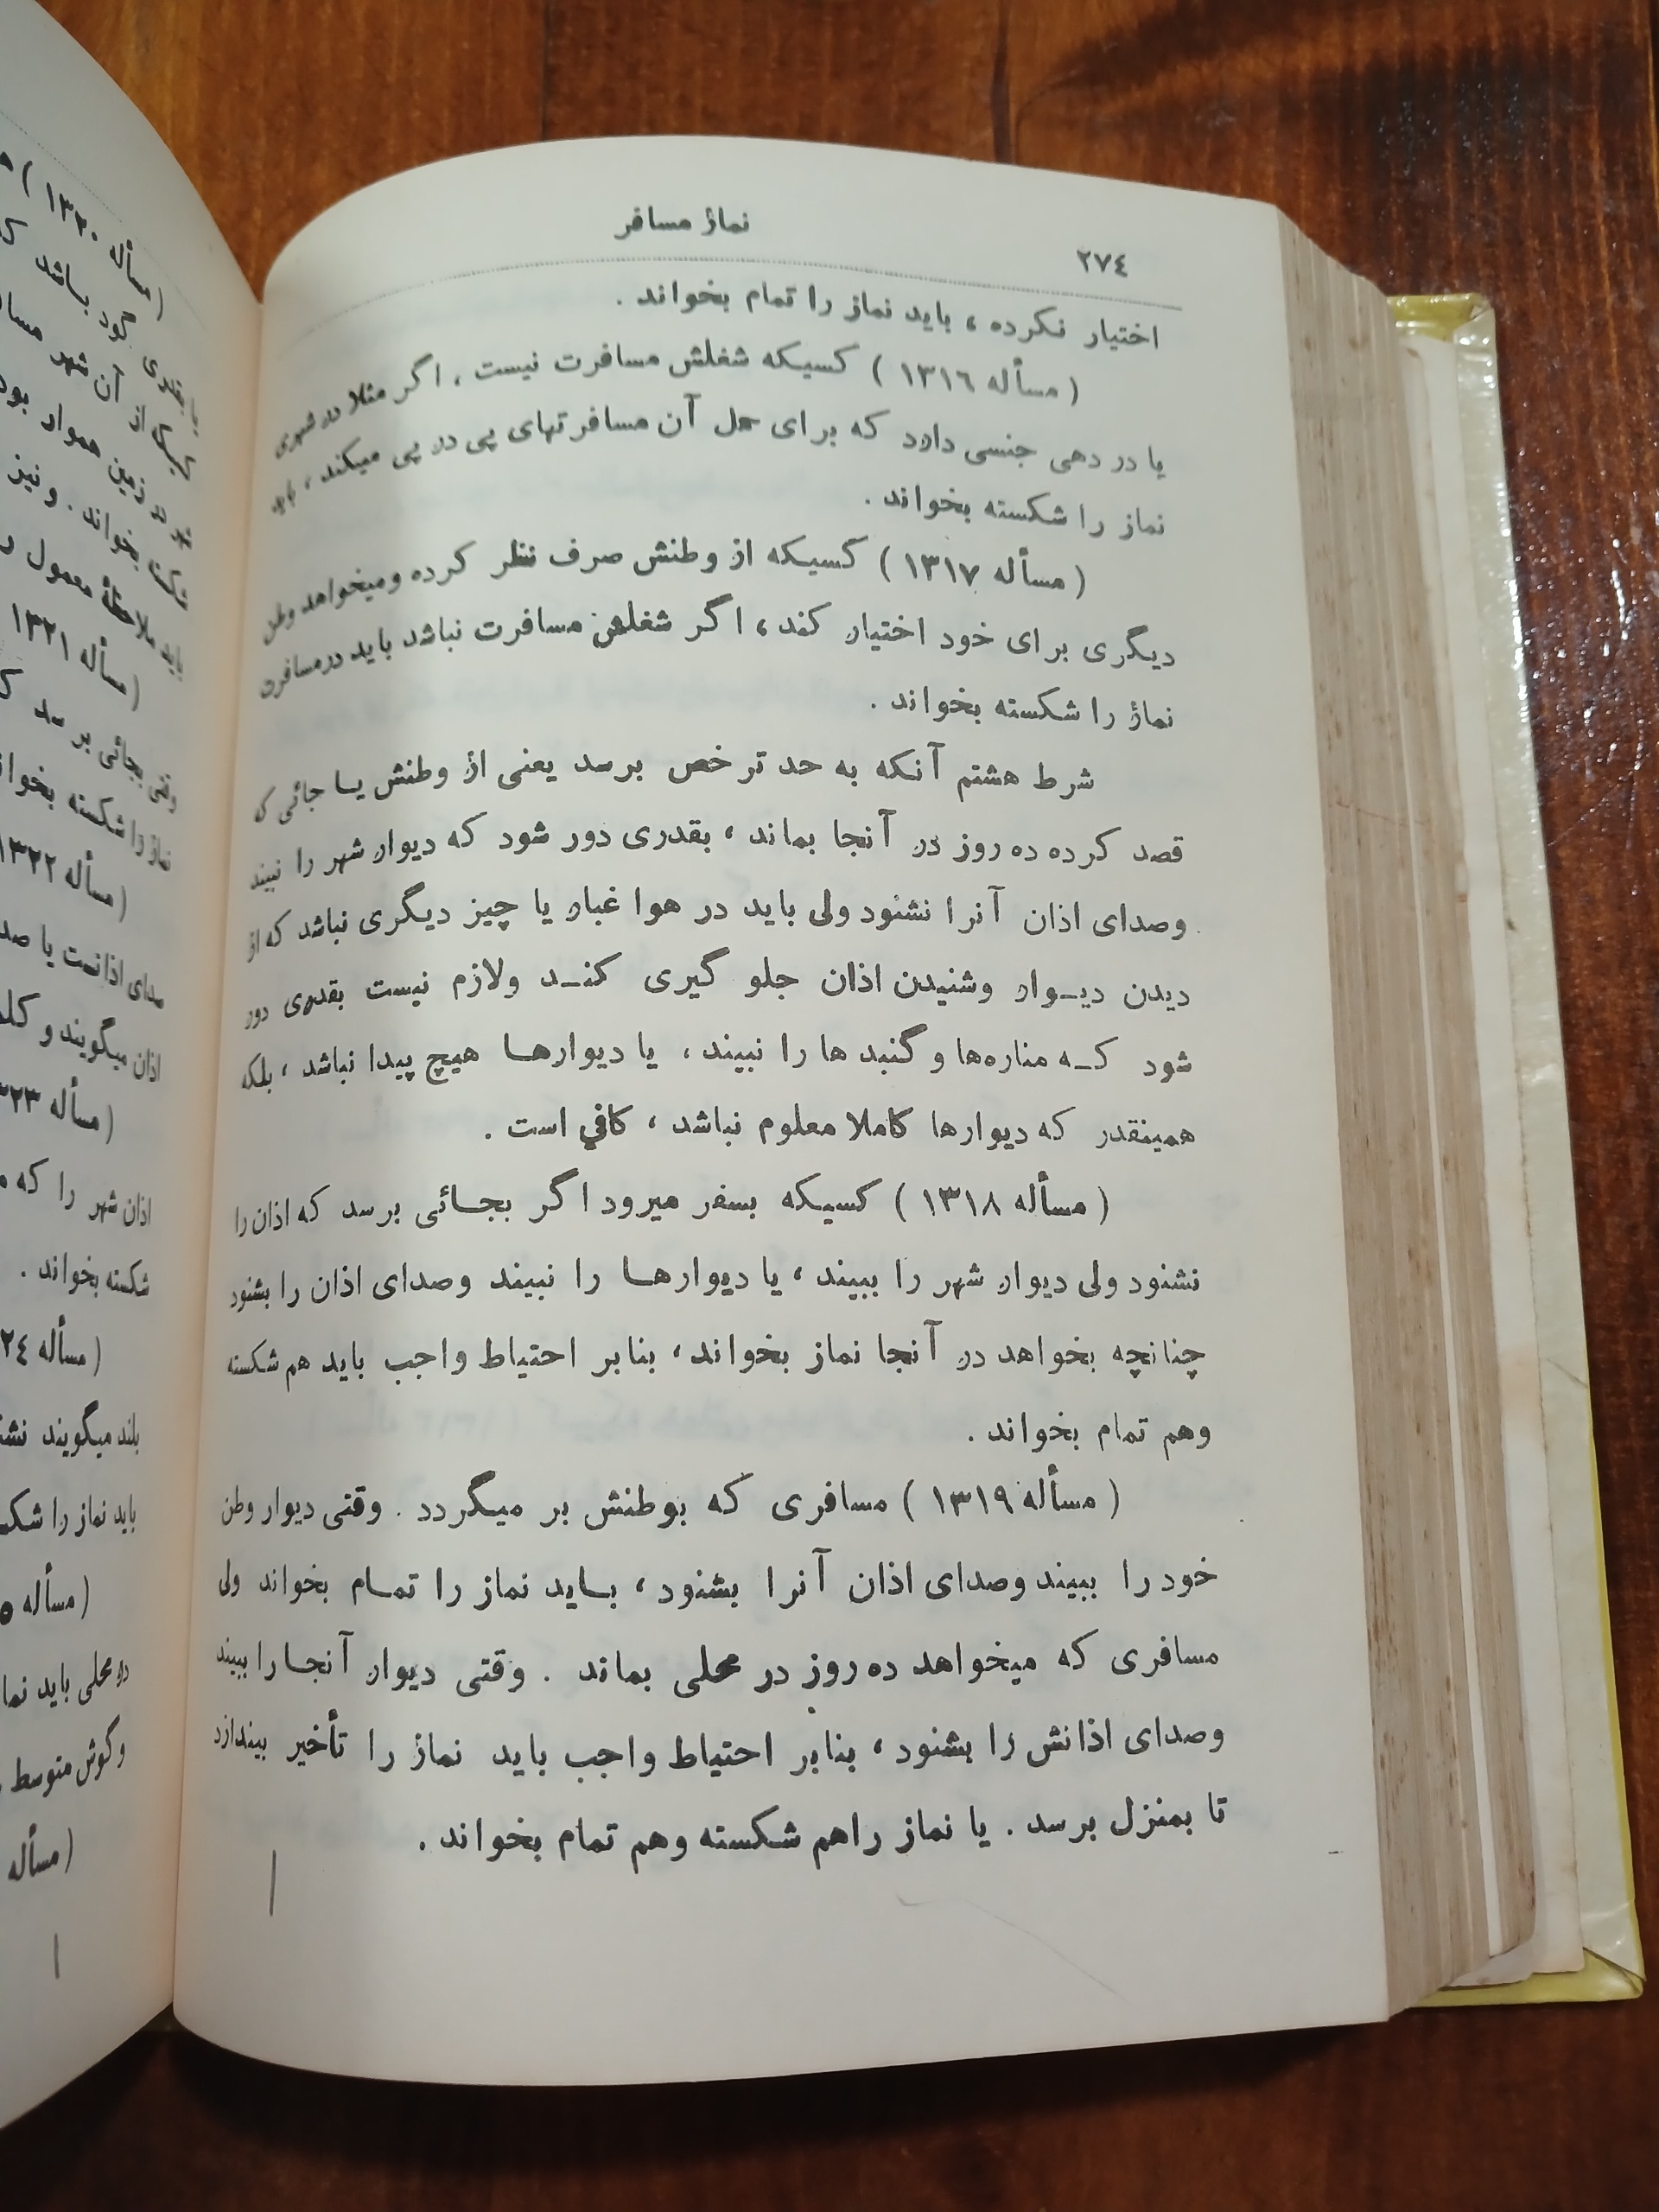 نماز مسافر
٢٧٤
اختیار نکرده ، باید نماز را تمام بخواند .
( مسأله ١٣١٦ ) کسیکه شغلش مسافرت نیست ، اگر مثلا در شهری
یا در دهی جنسی دارد که برای حمل آن مسافرتهای پی در پی میکند ، باید
نماز را شکسته بخواند .
( مسأله ١٣١٧ ) کسیکه از وطنش صرف نظر کرده ومیخواهد وطن
دیگری برای خود اختیار کند ، اگر شغلش مسافرت نباشد باید درمسافرت
نماز را شکسته بخواند .
شرط هشتم آنکه به حد ترخص برسد یعنی از وطنش یـا جائی که
قصد کرده ده روز در آنجا بماند ، بقدری دور شود که دیوار شهر را نبیند
وصدای اذان آنرا نشنود ولی باید در هوا غبار یا چیز دیگری نباشد که از
دیدن دیـوار وشنیدن اذان جلو گیری کنـد ولازم نیست بقدری دور
شود کـه مناره‌ها و گنبد ها را نبیند ، یا دیوارهـا هیچ پیدا نباشد ، بلکه
همینقدر که دیوارها کاملا معلوم نباشد ، کافي است .
( مسأله ١٣١٨ ) کسیکه بسفر میرود اگر بجـائی برسد که اذان را
نشنود ولی دیوار شهر را ببیند ، یا دیوارهـا را نبیند وصدای اذان را بشنود
چنانچه بخواهد در آنجا نماز بخواند ، بنابر احتیاط واجب باید هم شکسته
وهم تمام بخواند .
( مسأله ١٣١٩ ) مسافری که بوطنش بر میگردد . وقتی دیوار وطن
خود را ببیند وصدای اذان آنرا بشنود ، بـاید نماز را تمـام بخواند ولی
مسافری که میخواهد ده روز در محلی بماند . وقتی دیوار آنجـا را ببیند
وصدای اذانش را بشنود ، بنابر احتیاط واجب باید نماز را تأخیر بیندازد
تا بمنزل برسد . یا نماز راهم شکسته وهم تمام بخواند .
( مسأله ١٣٢٠ )
گود باشد
از آن شهر
زمین هموار
بخواند . ونیز
باید ملاحظهٔ معمول
( مسأله ١٣٢١
وقتی بجائی برسد
نماز را شکسته
( مسأله ١٣٢٢
صدای اذانست یا
اذان میگویند و
( مسأله
اذان شهر را که
شکسته بخواند .
( مسأله
بلند میگویند
باید نماز را
( مسأله
در محلی باید
وگوش متوسط
( مسأله